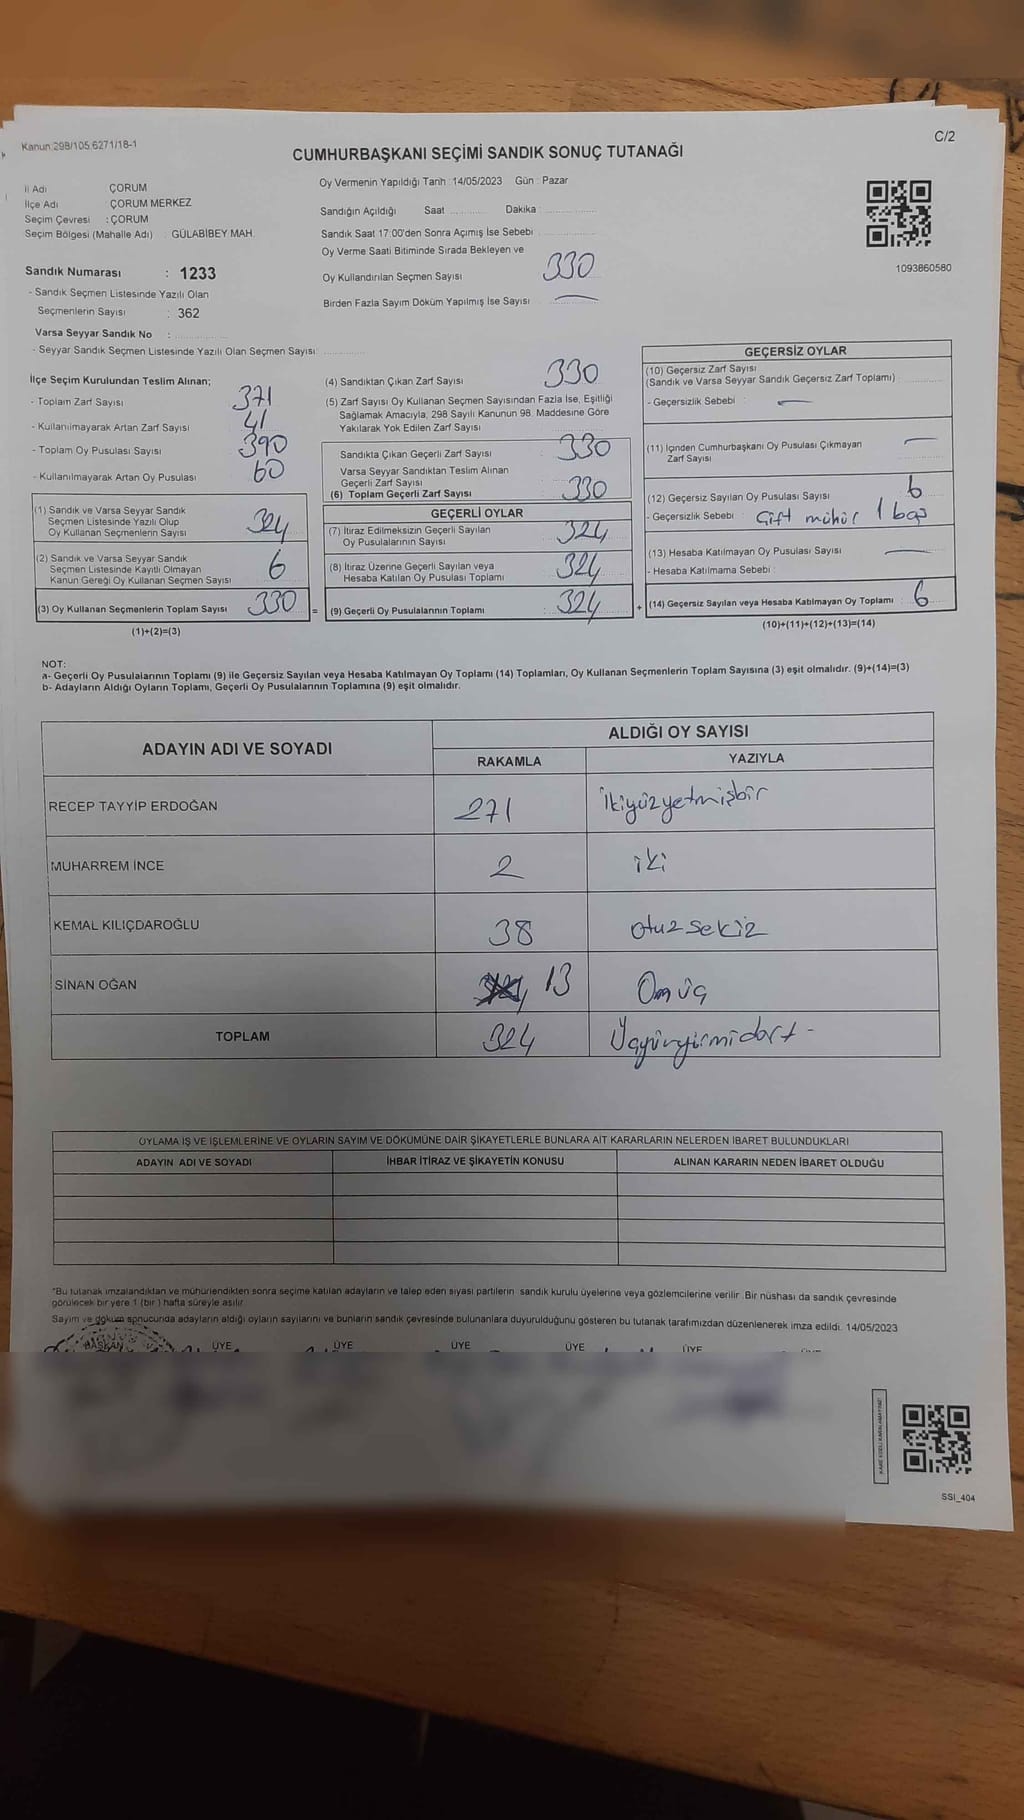 Kanun:298/105,6271/18-1
C/2
CUMHURBAŞKANI SEÇİMİ SANDIK SONUÇ TUTANAĞI
İl Adı ÇORUM
İlçe Adı ÇORUM MERKEZ
Seçim Çevresi : ÇORUM
Seçim Bölgesi (Mahalle Adı) : GÜLABİBEY MAH.
Oy Vermenin Yapıldığı Tarih : 14/05/2023 Gün : Pazar
Sandığın Açıldığı Saat ........... Dakika : ...............
Sandık Saat 17:00'den Sonra Açımış İse Sebebi
Oy Verme Saati Bitiminde Sırada Bekleyen ve
Oy Kullandırılan Seçmen Sayısı 330
Birden Fazla Sayım Döküm Yapılmış İse Sayısı —
1093860580
Sandık Numarası : 1233
- Sandık Seçmen Listesinde Yazılı Olan
Seçmenlerin Sayısı : 362
Varsa Seyyar Sandık No :
- Seyyar Sandık Seçmen Listesinde Yazılı Olan Seçmen Sayısı:
İlçe Seçim Kurulundan Teslim Alınan;
- Toplam Zarf Sayısı 371
- Kullanılmayarak Artan Zarf Sayısı 41
- Toplam Oy Pusulası Sayısı 390
- Kullanılmayarak Artan Oy Pusulası 60
(1) Sandık ve Varsa Seyyar Sandık
Seçmen Listesinde Yazılı Olup
Oy Kullanan Seçmenlerin Sayısı 324
(2) Sandık ve Varsa Seyyar Sandık
Seçmen Listesinde Kayıtlı Olmayan
Kanun Gereği Oy Kullanan Seçmen Sayısı 6
(3) Oy Kullanan Seçmenlerin Toplam Sayısı 330 =
(1)+(2)=(3)
(4) Sandıktan Çıkan Zarf Sayısı 330
(5) Zarf Sayısı Oy Kullanan Seçmen Sayısından Fazla İse, Eşitliği
Sağlamak Amacıyla, 298 Sayılı Kanunun 98. Maddesine Göre
Yakılarak Yok Edilen Zarf Sayısı
Sandıkta Çıkan Geçerli Zarf Sayısı 330
Varsa Seyyar Sandıktan Teslim Alınan
Geçerli Zarf Sayısı
(6) Toplam Geçerli Zarf Sayısı 330
GEÇERLİ OYLAR
(7) İtiraz Edilmeksizin Geçerli Sayılan
Oy Pusulalarının Sayısı 324
(8) İtiraz Üzerine Geçerli Sayılan veya
Hesaba Katılan Oy Pusulası Toplamı 324
(9) Geçerli Oy Pusulalarının Toplamı : 324 +
GEÇERSİZ OYLAR
(10) Geçersiz Zarf Sayısı
(Sandık ve Varsa Seyyar Sandık Geçersiz Zarf Toplamı)
- Geçersizlik Sebebi : —
(11) İçinden Cumhurbaşkanı Oy Pusulası Çıkmayan —
Zarf Sayısı
(12) Geçersiz Sayılan Oy Pusulası Sayısı 6
- Geçersizlik Sebebi : Çift mühür 1 boş
(13) Hesaba Katılmayan Oy Pusulası Sayısı —
- Hesaba Katılmama Sebebi :
(14) Geçersiz Sayılan veya Hesaba Katılmayan Oy Toplamı : 6
(10)+(11)+(12)+(13)=(14)
NOT:
a- Geçerli Oy Pusulalarının Toplamı (9) ile Geçersiz Sayılan veya Hesaba Katılmayan Oy Toplamı (14) Toplamları, Oy Kullanan Seçmenlerin Toplam Sayısına (3) eşit olmalıdır. (9)+(14)=(3)
b- Adayların Aldığı Oyların Toplamı, Geçerli Oy Pusulalarının Toplamına (9) eşit olmalıdır.
ADAYIN ADI VE SOYADI
ALDIĞI OY SAYISI
RAKAMLA YAZIYLA
RECEP TAYYİP ERDOĞAN 271 ikiyüzyetmişbir
MUHARREM İNCE 2 iki
KEMAL KILIÇDAROĞLU 38 otuz sekiz
SİNAN OĞAN 13 Onüç
TOPLAM 324 Üçyüzyirmidört -
OYLAMA İŞ VE İŞLEMLERİNE VE OYLARIN SAYIM VE DÖKÜMÜNE DAİR ŞİKAYETLERLE BUNLARA AİT KARARLARIN NELERDEN İBARET BULUNDUKLARI
ADAYIN ADI VE SOYADI İHBAR İTİRAZ VE ŞİKAYETİN KONUSU ALINAN KARARIN NEDEN İBARET OLDUĞU
*Bu tutanak imzalandıktan ve mühürlendikten sonra seçime katılan adayların ve talep eden siyasi partilerin sandık kurulu üyelerine veya gözlemcilerine verilir. Bir nüshası da sandık çevresinde
görülecek bir yere 1 (bir) hafta süreyle asılır.
Sayım ve döküm sonucunda adayların aldığı oyların sayılarını ve bunların sandık çevresinde bulunanlara duyurulduğunu gösteren bu tutanak tarafımızdan düzenlenerek imza edildi. 14/05/2023
BAŞKAN ÜYE ÜYE ÜYE ÜYE ÜYE
SSI_404